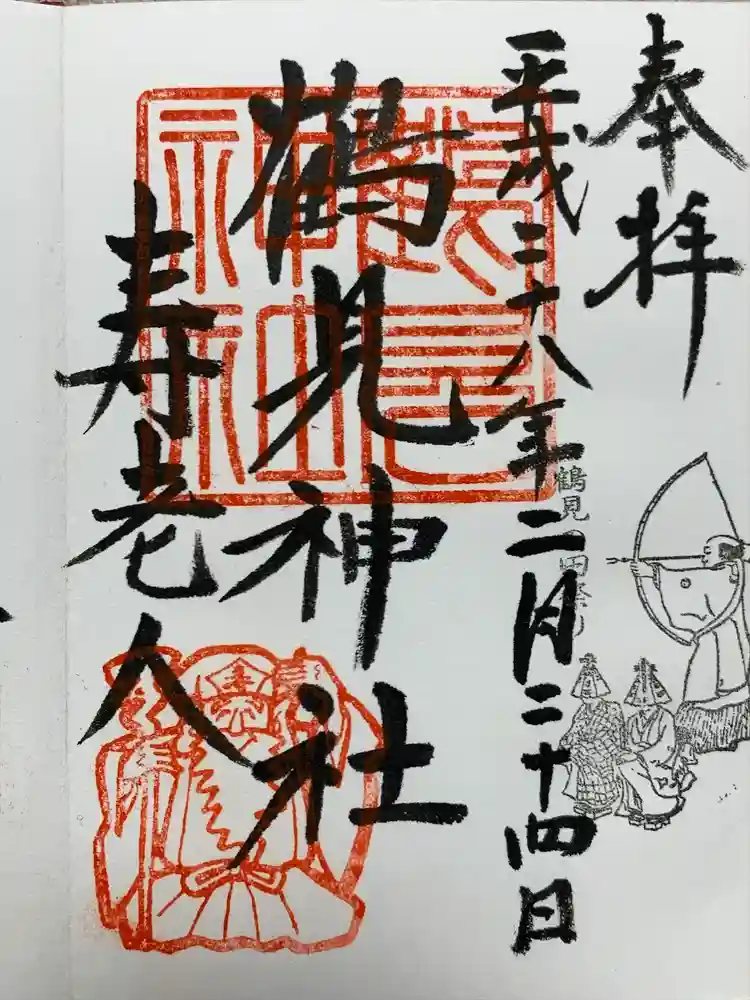 奉拝
平成二十八年二月二十四日
鶴見の田祭り
鶴見神社
寿老人
鶴見神社